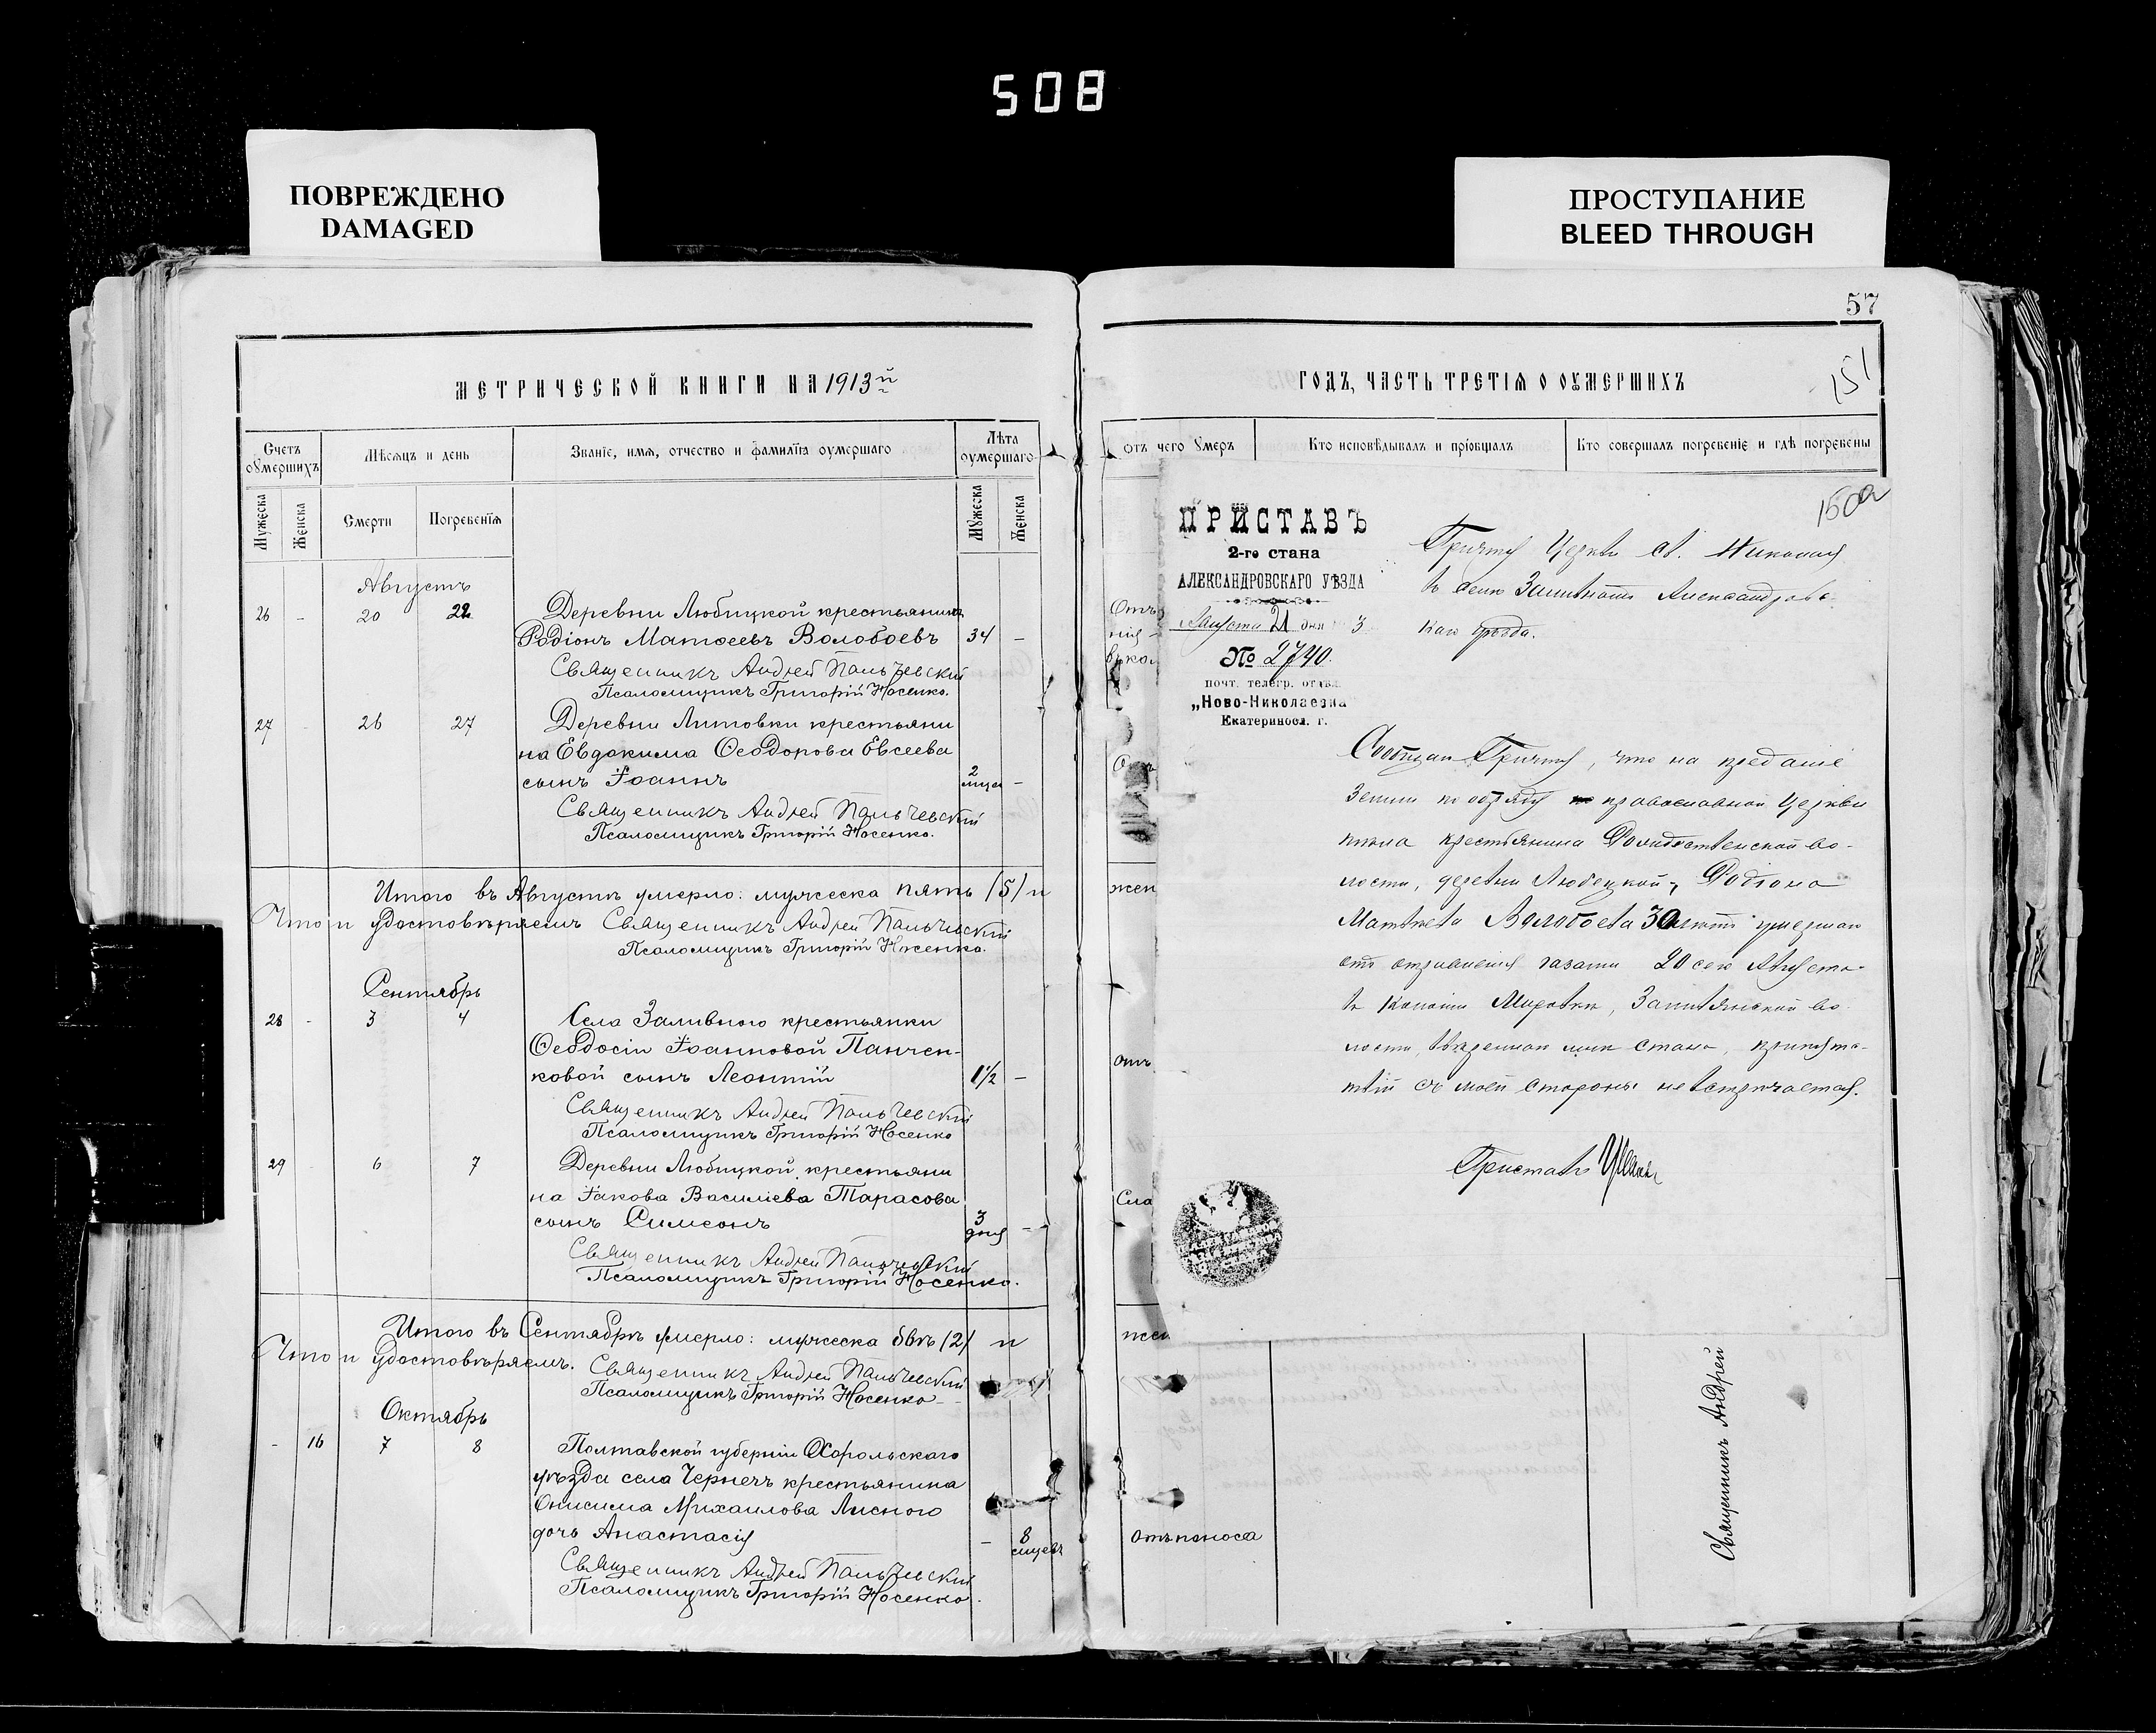 508
ПОВРЕЖДЕНО
DAMAGED
ПРОСТУПАНИЕ
BLEED THROUGH
МЕТРИЧЕСКОЙ КНИГИ НА 1913й
Счетъ оумершихъ
Мѣсяцъ и день
Званіе, имя, отчество и фамилія оумершаго
Лѣта оумершаго
Мужеска
Женска
Смерти
Погребенія
Мужеска
Женска
Августъ
26 - 20 22 Деревни Любицкой крестьянинъ
Родіонъ Матѳеевъ Волобоевъ 34 -
Священникъ Андрей Пальчевскій
Псаломщикъ Григорій Носенко.
27 - 26 27 Деревни Литовки крестьяни
на Евдокима Ѳеодорова Евсеева
сынъ Іоаннъ 2 мцса -
Священникъ Андрей Пальчевскій
Псаломщикъ Григорій Носенко.
Итого въ Августѣ умерло: мужеска пять (5) и
Что и удостовѣряемъ Священникъ Андрей Пальчевскій
Псаломщикъ Григорій Носенко.
Сентябрь
28 - 3 4 Села Заливного крестьянки
Ѳеодосіи Іоанновой Панчен-
ковой сынъ Леонтій 1½ -
Священникъ Андрей Пальчевскій
Псаломщикъ Григорій Носенко
29 - 6 7 Деревни Любицкой крестьяни
на Іакова Василіева Тарасова
сынъ Симеонъ 3 дня -
Священникъ Андрей Пальчевскій
Псаломщикъ Григорій Носенко.
Итого въ Сентябрѣ умерло: мужеска двѣ (2) и
Что и удостовѣряемъ. Священникъ Андрей Пальчевскій
Псаломщикъ Григорій Носенко
Октябрь
- 16 7 8 Полтавской губерніи Хорольскаго
уѣзда села Чернечъ крестьянина
Онисима Михаилова Лисного
дочь Анастасія - 8 мцевъ
Священникъ Андрей Пальчевскій
Псаломщикъ Григорій Носенко.
57
ГОДЪ, ЧАСТЬ ТРЕТІЯ О ОУМЕРШИХЪ
151
отъ чего умеръ
Кто исповѣдывалъ и пріобщалъ
Кто совершалъ погребеніе и гдѣ погребены
150а
ПРИСТАВЪ
2-го стана
АЛЕКСАНДРОВСКАГО УѢЗДА
Августа 21 дня 3
№ 2740.
почт. телегр. отдѣл.
„Ново-Николаевка
Екатеринося. г.
Причту Церкви св. Николая
въ селѣ Заливномъ Александровс-
каго уѣзда.
Сообщаю Причту, что на преданіе
земли по обряду православной Церкви
крестьянина Рождественской во-
лости, деревни Любецкой, Родіона
Матвѣева Волобоева 30 лѣтъ умершаго
отъ отравленія газами 20 сего Августа
въ Мировкѣ, Заливянской во-
лости, ввѣреннаго мнѣ стана, препятс-
твій съ моей стороны не встрѣчается.
Приставъ
Отъ
жен
отъ
Сла
жен
отъ поноса
Священникъ Андрей